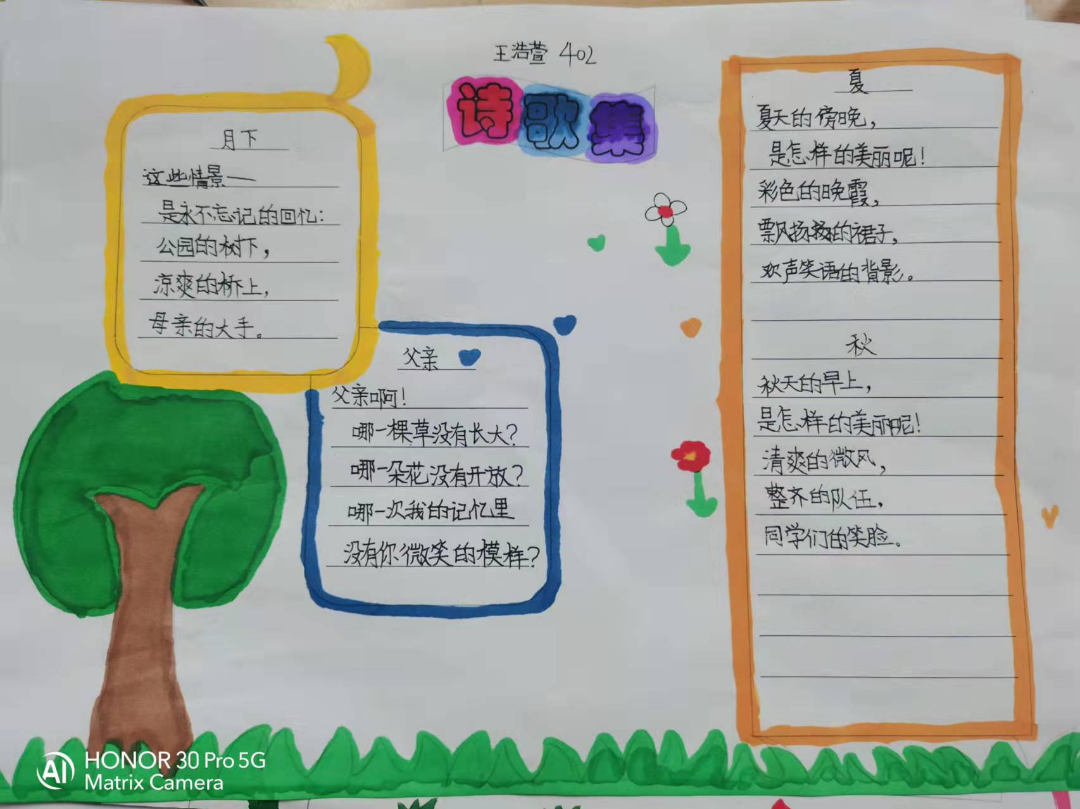 王浩萱 402
诗歌集
月下
这些情景—
是永不忘记的回忆：
公园的树下，
凉爽的桥上，
母亲的大手。
父亲
父亲啊！
哪一棵草没有长大？
哪一朵花没有开放？
哪一次我的记忆里
没有你微笑的模样？
夏
夏天的傍晚，
是怎样的美丽呢！
彩色的晚霞，
飘飘扬扬的裙子，
欢声笑语的背影。
秋
秋天的早上，
是怎样的美丽呢！
清爽的微风，
整齐的队伍，
同学们的笑脸。
AI HONOR 30 Pro 5G
Matrix Camera